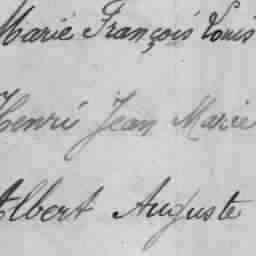 Marie François Louis
Henri Jean Marie
Albert Auguste